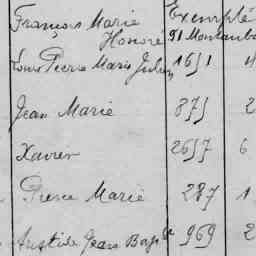 François Marie Exempté
Honoré 71 Montauba
Louis Pierre Marie Julien 1651
Jean Marie 875 2
Xavier 2657 6
Pierre Marie 287 1
Aristide Jean Bapt 969 2